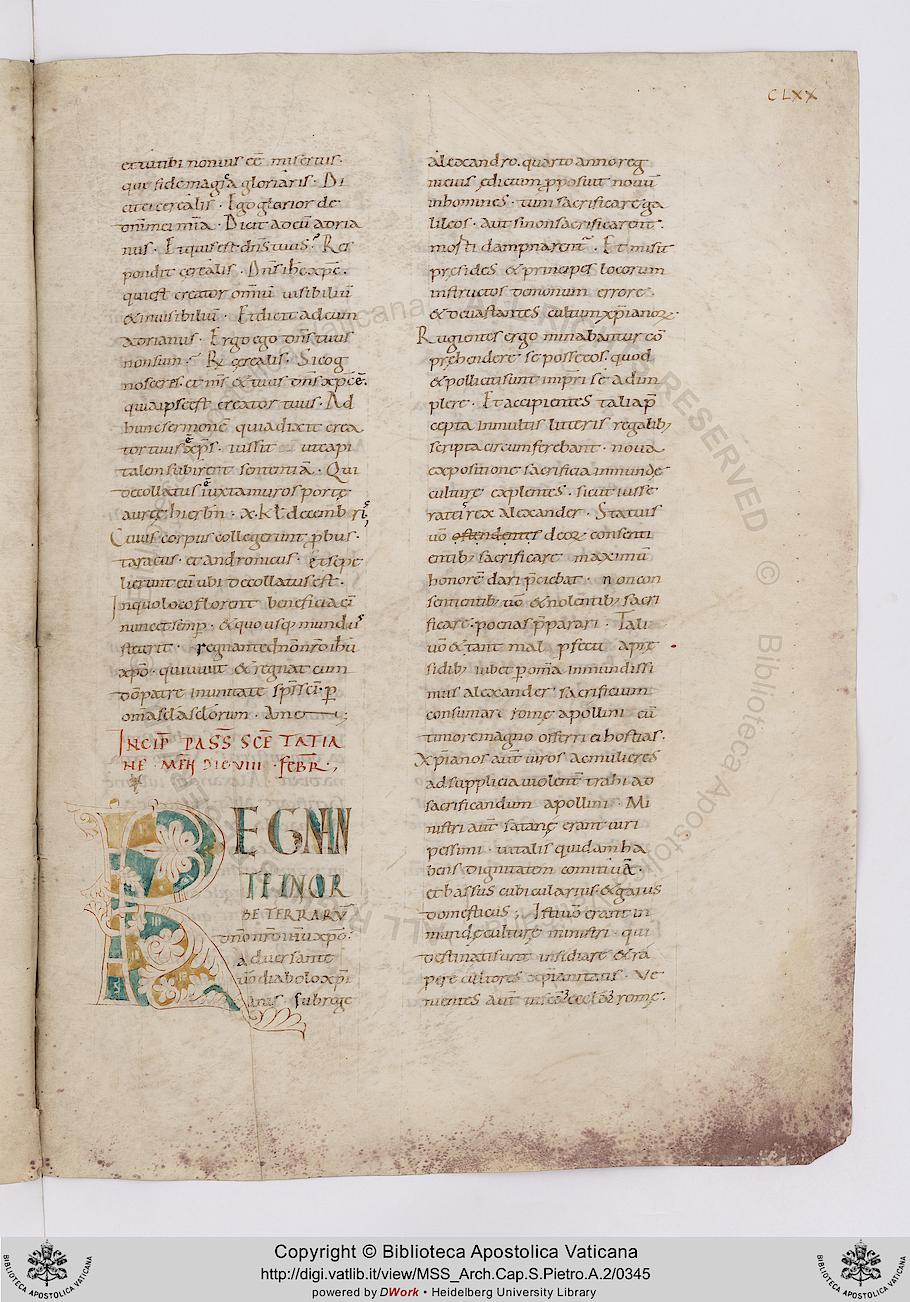 CLXX
et tu tibi non uis eē miserius.
que fide magica gloriaris. Di
cit ei cerealis. Ego glorior de
dn̄i mei mīa. Dicit ad eū adria
nus. Et quis est dn̄s tuus? Res
pondit cerealis. Dn̄s ihc xp̄c.
qui est creator omniū uisibiliū
& inuisibiliū. Et dicit ad eum
adrianus. Ergo ego dn̄s tuus
non sum? R̄ cerealis. Si cog
nosceres. et m̄s & tuus dn̄s xp̄c ē.
quia ipse est creator tuus. Ad
hunc sermonē quia dixit crea
tor tuus xp̄s. iussit ut capi
talem subirent sententiā. Qui
decollatus ē iuxta muros portę
aureę hierłm. x. kł decembriū
Cuius corpus collegerunt p̄bus.
taracus. et andronicus. et sepe
lierunt eū ubi decollatus est.
In quo loco florent beneficia ei
nunc et semp. & quousq; mundus
steterit. regnante dn̄o nr̄o ihū
xp̄o. qui uiuit & regnat cum
dō patre in unitate sp̄s sc̄i. p
om̄a scła scłorum. amen;
INCIP̄ PASS̄ SCE TATIA
NE. MEN̄ DIE VIII. FEBR̄.,
REGNAN
TE IN OR
BE TERRARŪ
dn̄o nr̄o ihū xp̄o.
aduersante
uō diabolo xp̄i
anis subrege
alexandro. quarto anno reg
ni eius edictum pposuit nouū
in homines. tum sacrificare ga
lileos. aut si non sacrificarent.
morti dampnarent. Et misit
presides & principes locorum
instructos demonum errore.
& deuastantes cultum xp̄ianorꝝ.
Rugientes ergo minabantur cō
prehendere se posse eos. quod
& polliciti sunt imp̄ri se adim
plere. Et accipientes talia p̄
cepta in multis litteris regalib;
scripta circumferebant. noua
expositione sacrificia inmundę
culturę explentes. sicut iusse
rat ē rex alexander. Statuis
uō ostendentes deoꝝ consenti
entib; sacrificare maximū
honorē dari p̄cipiebat. non con
sentientib; uō & nolentib; sacri
ficare. poenas p̄parari. Tali
uō & tant mal pfectu a pre
sidib; iubet p om̄a inmundissi
mus alexander. sacrificium
consumari romę apollini cū
timore magno offerri ei hostias.
Xp̄ianos aūt uiros ac mulieres
ad supplicia uiolent trahi ad
sacrificandum apollini. Mi
nistri aūt satanę erant uiri
pessimi. uitalis quidam ha
bens dignitatem comitiuā.
et bassus cubicularius & gaius
domesticus; Isti uō erant in
mundę culturę ministri. qui
destinati sunt insidiare & ra
pere cultores xp̄ianitatis. Ve
nientes aūt romę.
Copyright © Biblioteca Apostolica Vaticana
http://digi.vatlib.it/view/MSS_Arch.Cap.S.Pietro.A.2/0345
powered by DWork • Heidelberg University Library
BIBLIOTECA APOSTOLICA VATICANA
BIBLIOTECA APOSTOLICA VATICANA